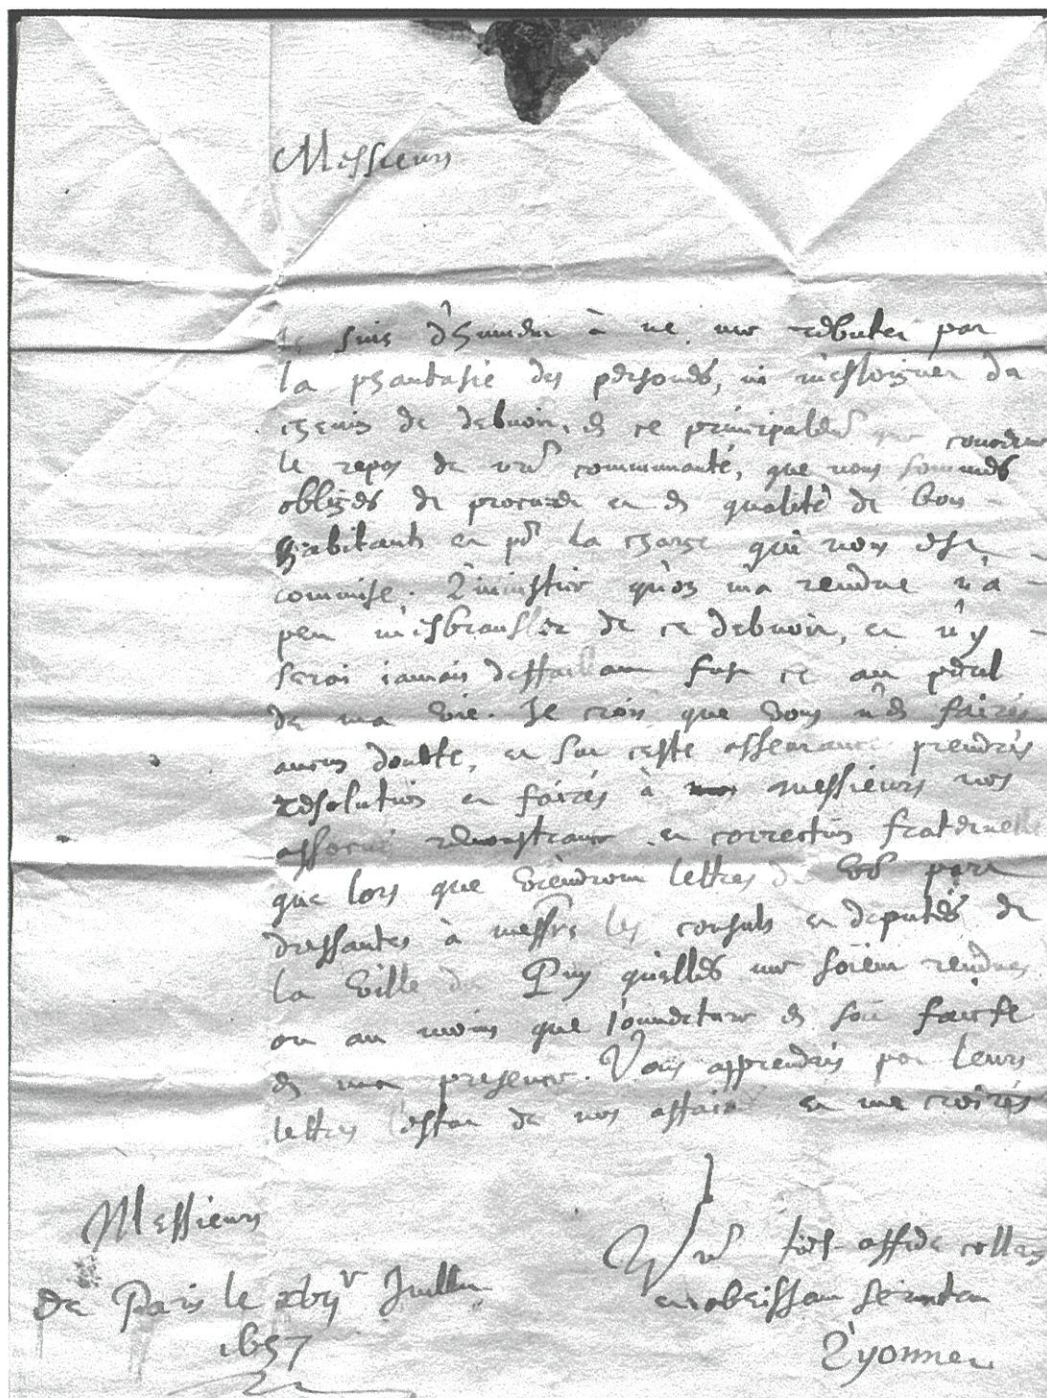 Messieurs
Je suis d'humeur à ne me rebuter par
la phantasie des persones, ni m'esloigner du
chemin de debuoir, en ce principalemt que concerne
le repos de vre communauté, que nous sommes
obligés de procurer et en qualité de bons
habitants et pr la charge qui nous est
commise. L'iniustice qu'on m'a rendue n'a
peu m'esbransler de ce debuoir, et n'y
serai iamais deffaillant fust ce au peril
de ma vie. Je crois que vous n'en fairés
aucun doubte, et sur ceste asseurance prendrés
resolution et fairés à messieurs nos
associés remonstrance et correction fraternelle
que lors que viendront lettres de vre part
dressantes à messrs les consuls et deputés de
la ville du Puy qu'elles me soient rendues
ou au moins que l'ouuerture en soit faicte
en ma presence. Vous apprendrés par leurs
lettres l'estat de nos affaires et me croirés
Messieurs
Vre tres affide
et obeissant seruiteur
Lyonnet
de Paris le xvij Juillet
1657